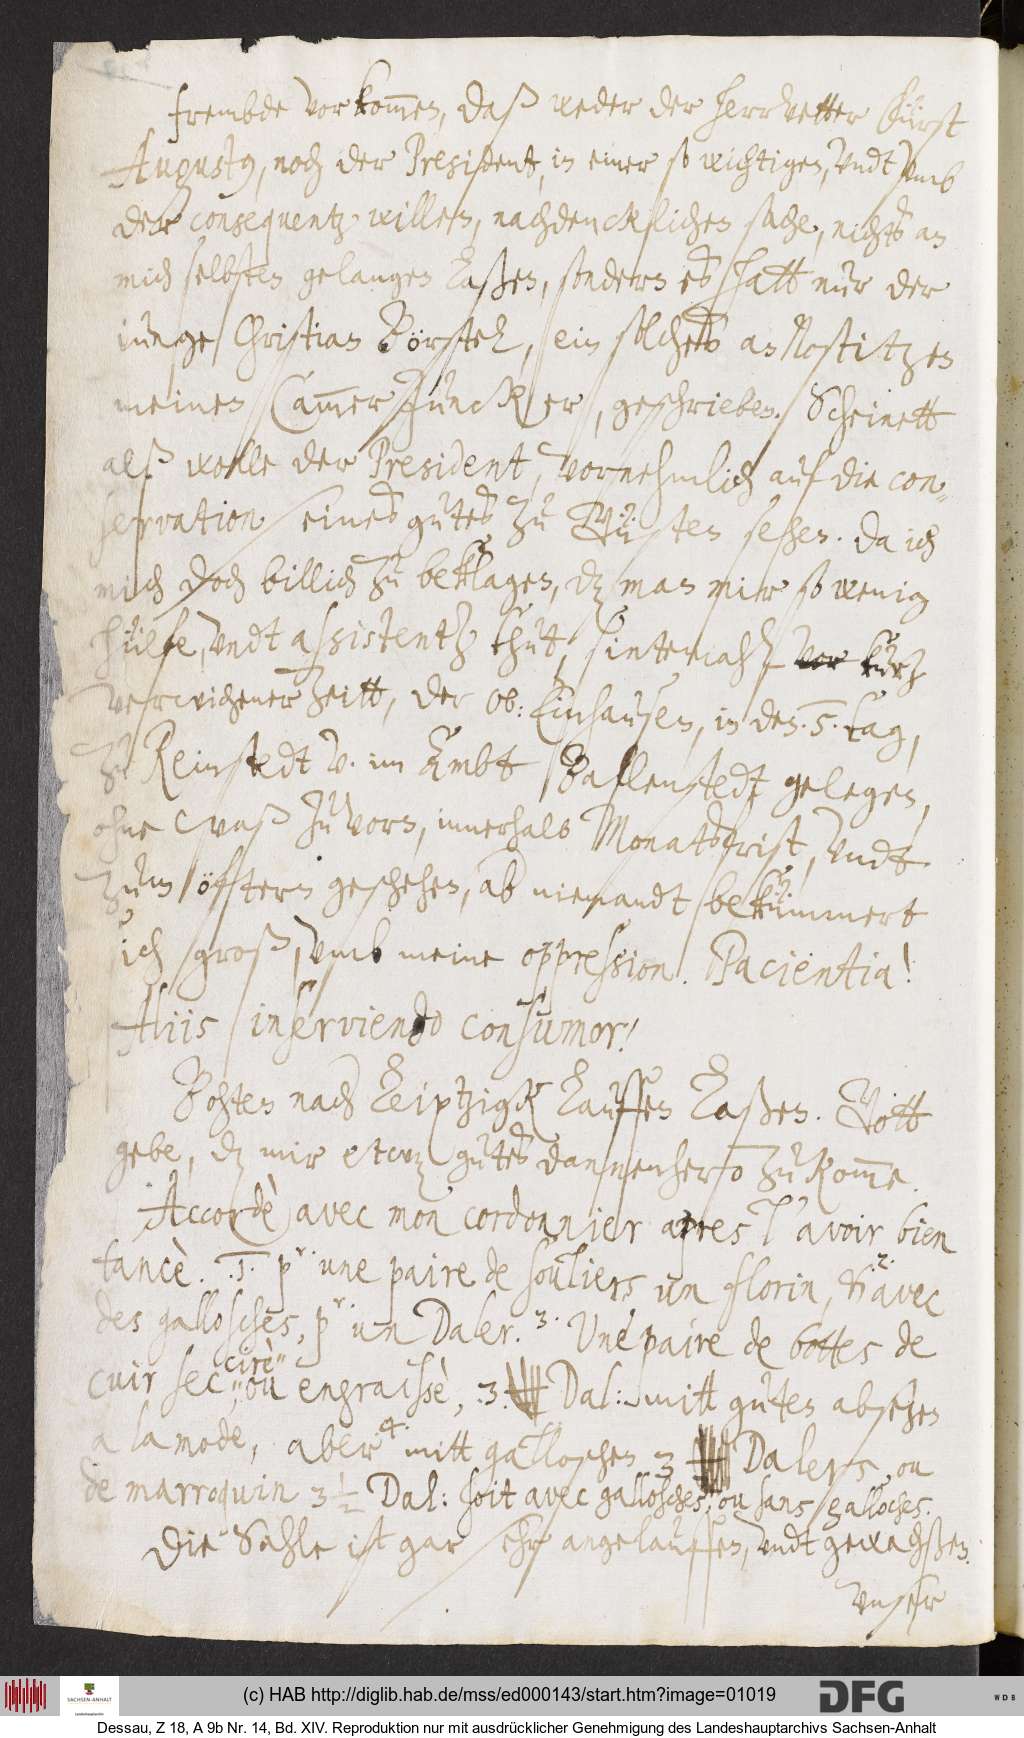 frembde vorkom̅en, daß weder der herrvetter Fürst
Augustq, noch der President, in einer so wichtigen, undt umb
der consequentz willen, nachdencklichen sache, nichts an
mich selbsten gelangen laßen, sondern es hatt nur der
iunge Christian Börstel, ein solches an Nostitzen
meinen Cam̅erJuncker, geschrieben. Scheinett
alß wolle der President, vornehmlich auf die con¬
servation seines gutes zu Güsten sehen. da ich
mich doch billich zu beklagen, dz man mir so wenig
hülfe, undt assistentz thut, sintemahl vor kurtz
verwichener zeitt, der Ob: Linhausen, in den .5. Tag,
zu Reinstedt v. im Ambt Ballenstedt gelegen,
ohne waß zuvorn, innerhalb Monatsfrist, undt
zum öftern geschehen, ab niemandt bekümmert
sich groß, umb meine oppression. Pacientia!
Aliis inserviendo consumor!
Bohten nach Leiptzigk lauffen laßen. Gott
gebe, dz mir etwz gutes dannenhero zukom̅e.
Accordè avec mon cordonnier apres l'avoir bien
tancè. .1. pr. une paire de souliers un florin, 2. avec
des galloschès, pr. un Daler. 3. Une paire de bottes de
cuir sec cirè" ou engraissè, .3. Dal: mitt guten absehen
a la mode, aber 4. mitt galloschen 3 Dalers, ou
de marroquin 3 1/2 Dal: soit avec gallosches, ou sans galloches.
Die Sahle ist gar sehr angelauffen, undt gewachßen.
Unser
(c) HAB http://diglib.hab.de/mss/ed000143/start.htm?image=01019
SACHSEN-ANHALT
Landeshauptarchiv
DFG
WDB
Dessau, Z 18, A 9b Nr. 14, Bd. XIV. Reproduktion nur mit ausdrücklicher Genehmigung des Landeshauptarchivs Sachsen-Anhalt